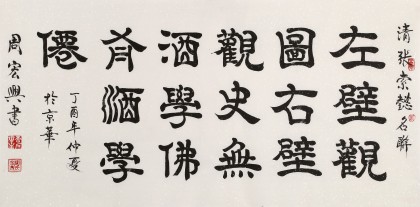 清張索懿名聯
左壁觀
圖右壁
觀史無
酒學佛
有酒學
僊
丁酉年仲夏
於京華
周宏興書